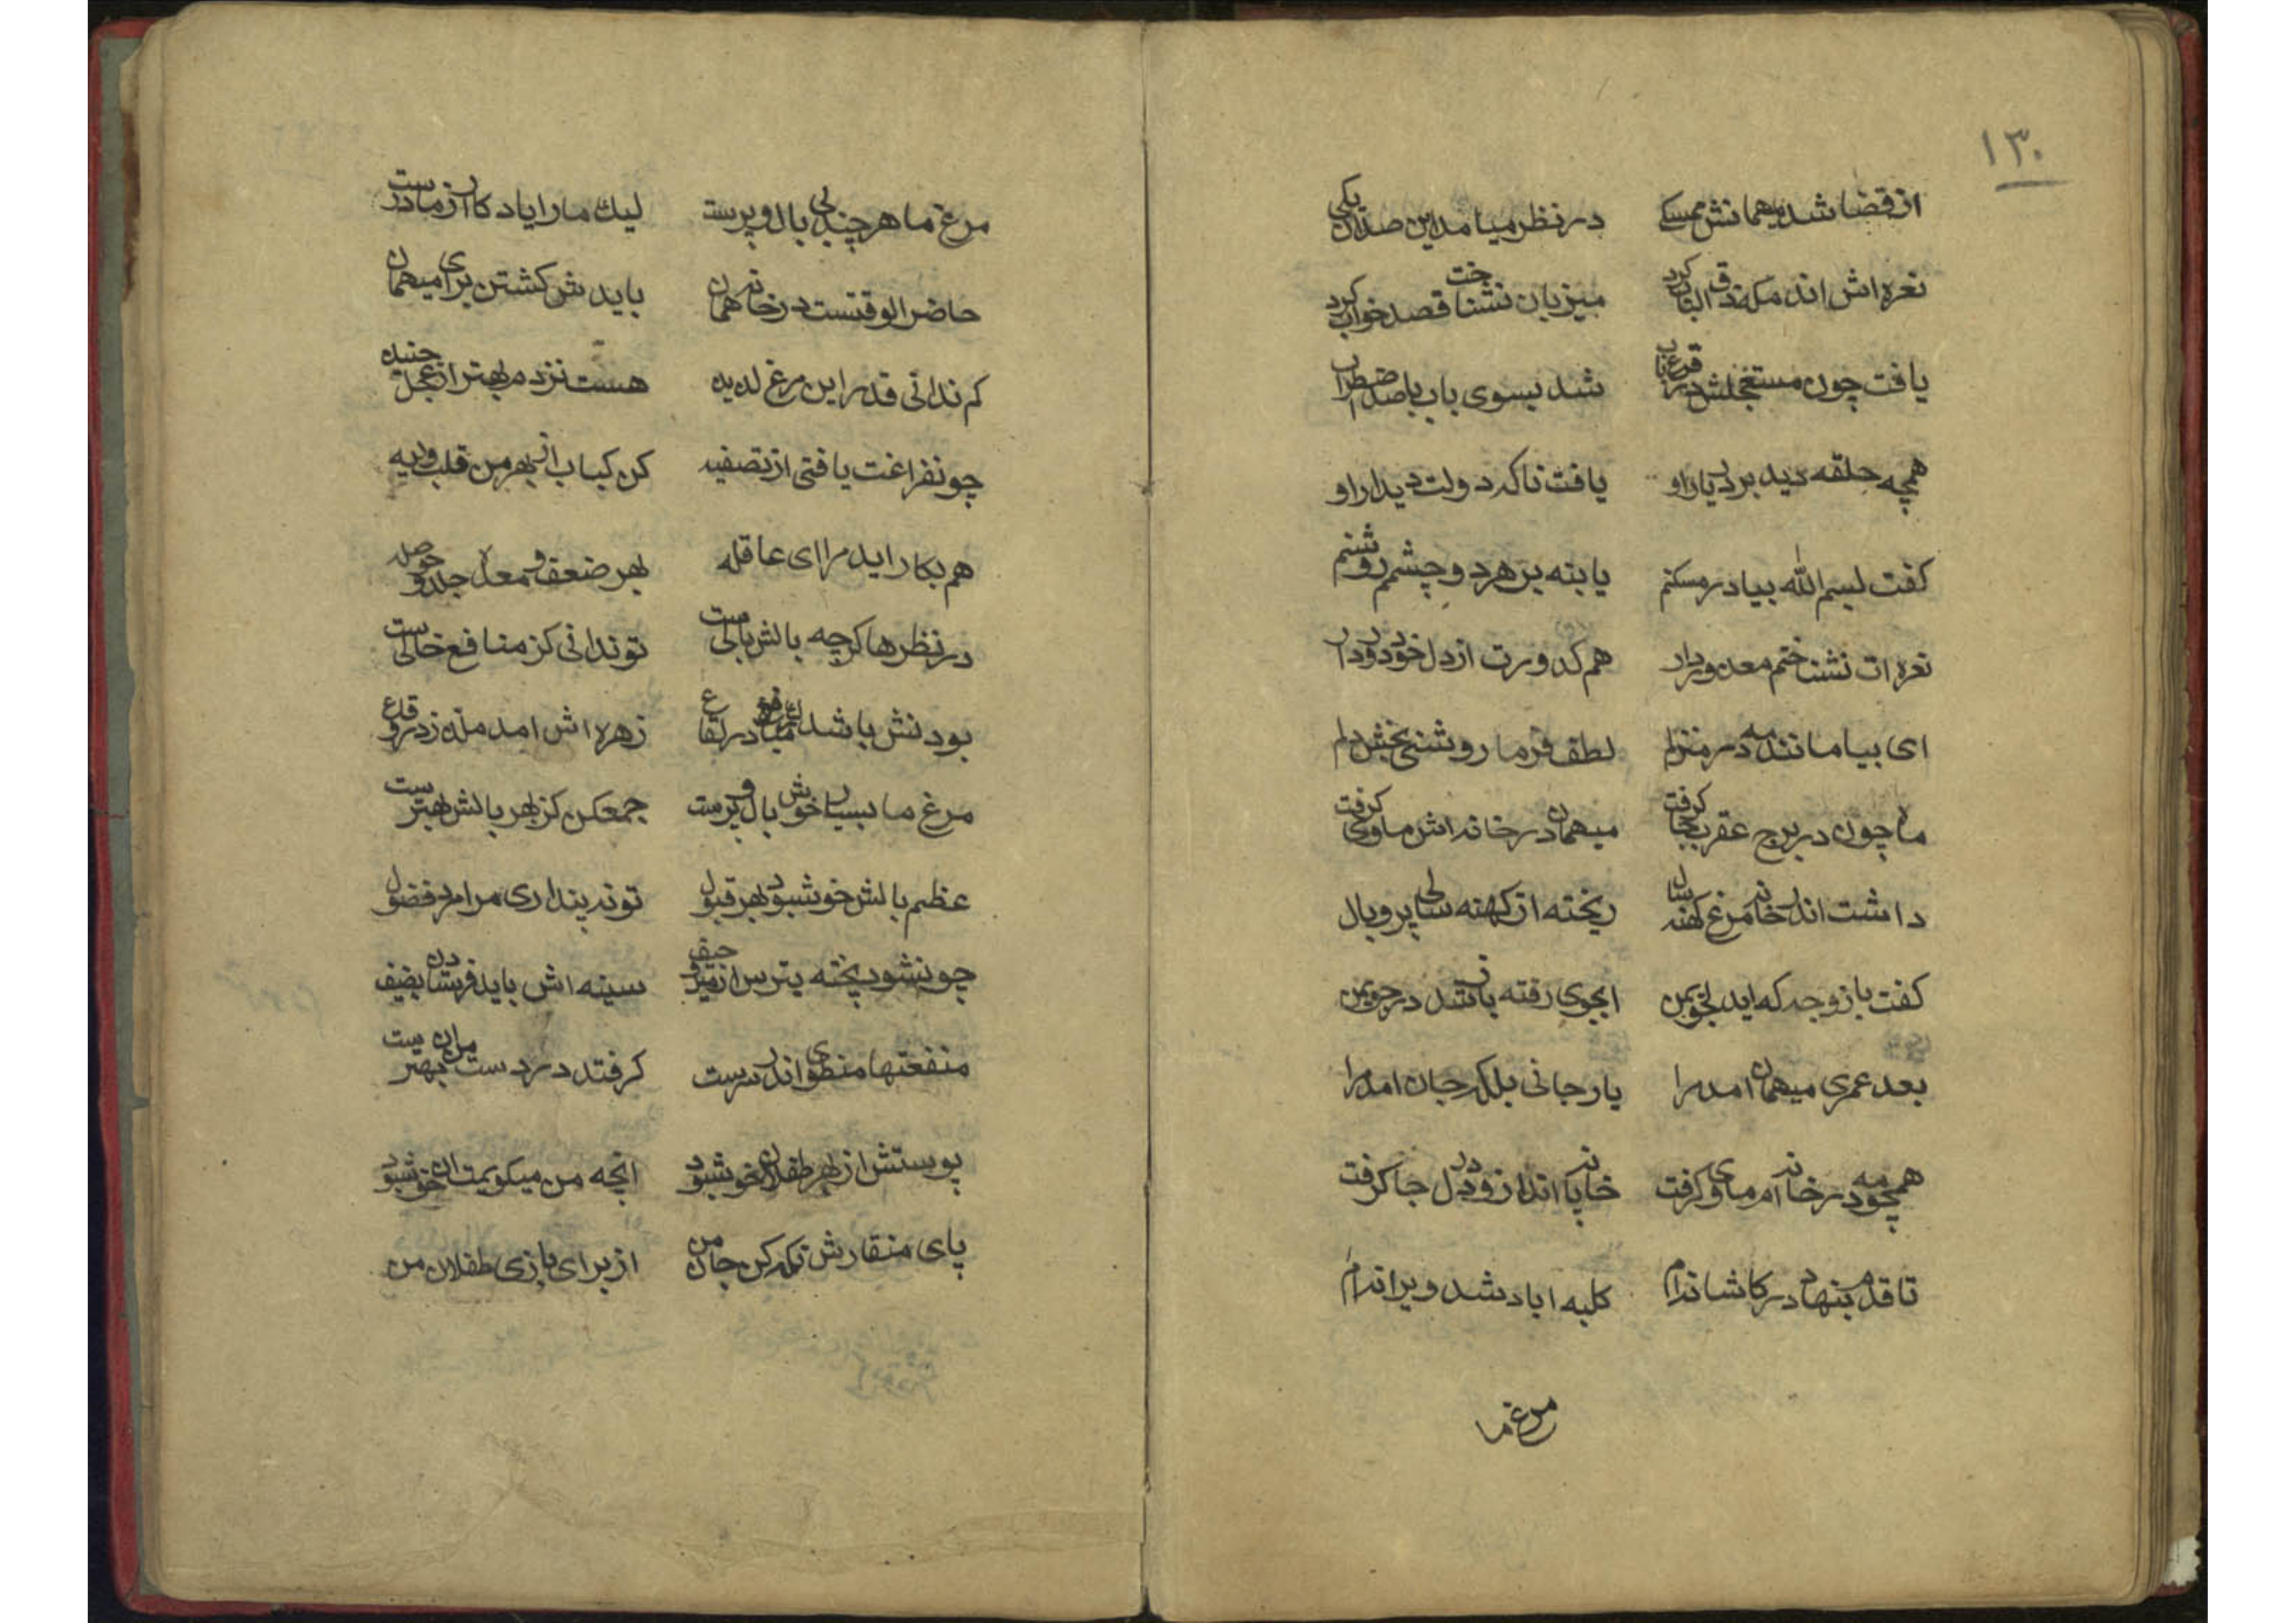 ۱۳۰
از قضا شد میهمانش ممسکی در نظر میامد این صدرا یکی
نعره اش اندم که دق الباب کرد میزبان نشناخت قصد خواب کرد
یافت چون مستعجلش در قرع باب شد بسوی باب با صد اضطراب
همچه حلقه دید بر در یار او یافت ناکه دولت دیدار او
کفت بسم الله بیا در مسکنم پا بنه بر هر دو چشم روشنم
نعره ات نشناختم معذور دار هم کدورت از دل خود دور دار
ای بیا مانند مه در منزلم لطف فرما روشنی بخش دلم
ماه چون در برج عقرب جا کرفت میهمان در خانه اش ماوی کرفت
داشت اندر خانه مرغ کهنه سال ریخته از کهنه سالی پر و بال
کفت با زوجه که اید بجویمن ابجوی رفته باز شد در جویمن
بعد عمری میهمان امد مرا یار جانی بلکه جان امد مرا
همچو مه در خانه ام ماوی کرفت خانه پا انداز و در دل جا کرفت
تا قدم بنهاد در کاشانه ام کلبه اباد شد ویرانه ام
مرغ ما
مرغ ما هر چند بی بال و پرست لیک ما را یادکار از مادرست
حاضر الوقتست در خانه همان باید ش کشتن برای میهمان
کم ندانی قدر این مرغ لدید هست نزدم بهتر از عجل حنید
چونفراغت یافتی از تصفیه کن کباب از بهر من قلب و ریه
هم بکار اید مرا ای عاقله بهر ضعف معده جلد و حوصله
در نظرها کرچه بالش بالیست تو ندانی کز منافع خالیست
بودنش باشد در لقاع زهره اش امد مله زدرو قاع
مرغ ما بسیار خوش بال و پرست جمعکن کز بهر بالش بهترست
عظم بالش خوشبود بهر قبول تو نه پنداری مرا مرد فضول
چونشود پخته بترس از تیر و حیف سینه اش باید فرستادن بضیف
منفعتها منطوی اندر سرست کرفتد در دست میران بهترست
پوستش از بهر طفلان خوشبود انچه من میکویمت ان خوشبود
پای منقارش نکه کن جان من از برای بازی طفلان من